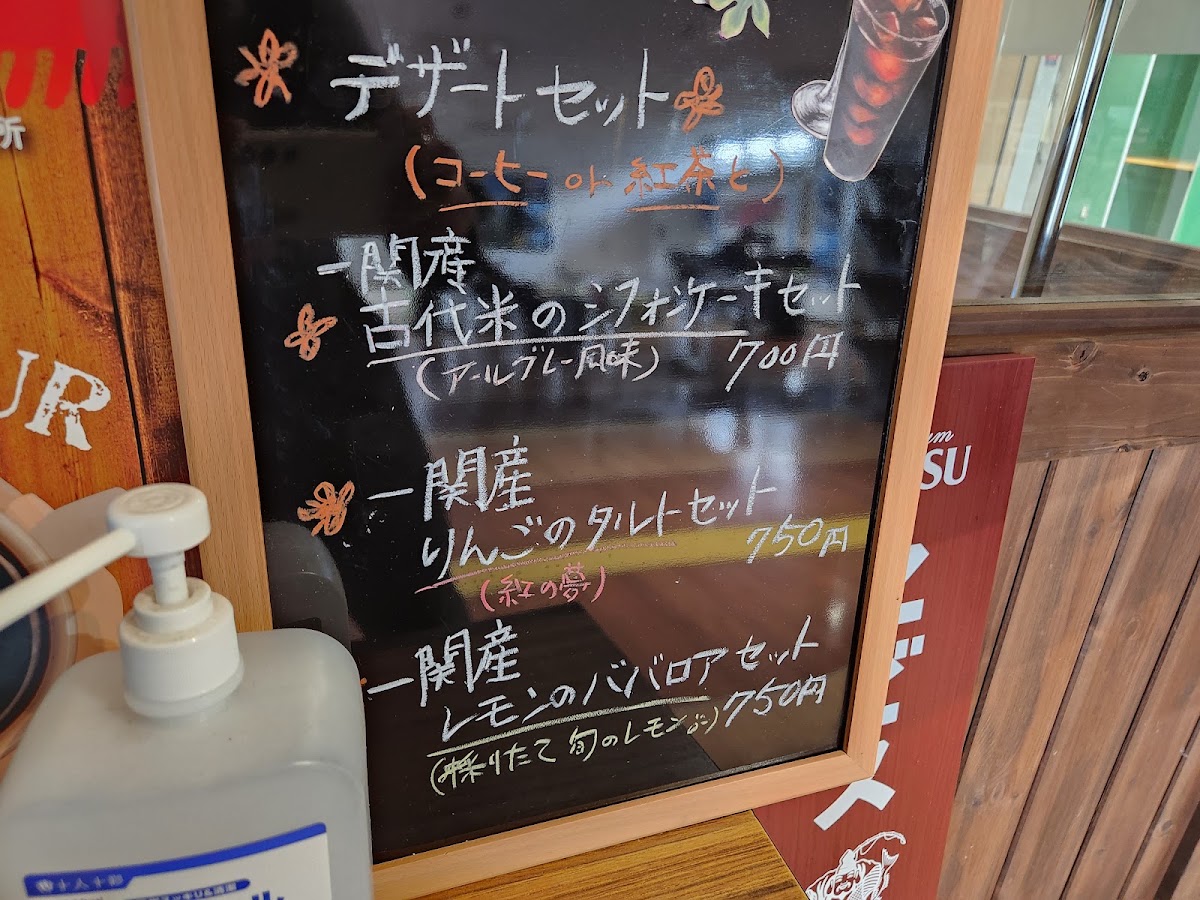 デザートセット
(コーヒー or 紅茶と)
一関産
古代米のシフォンケーキセット
(アールグレー風味) 700円
一関産
りんごのタルトセット 750円
(紅の夢)
一関産
レモンのババロアセット
(採りたて旬のレモン) 750円
所
UR
SU
十人十彩